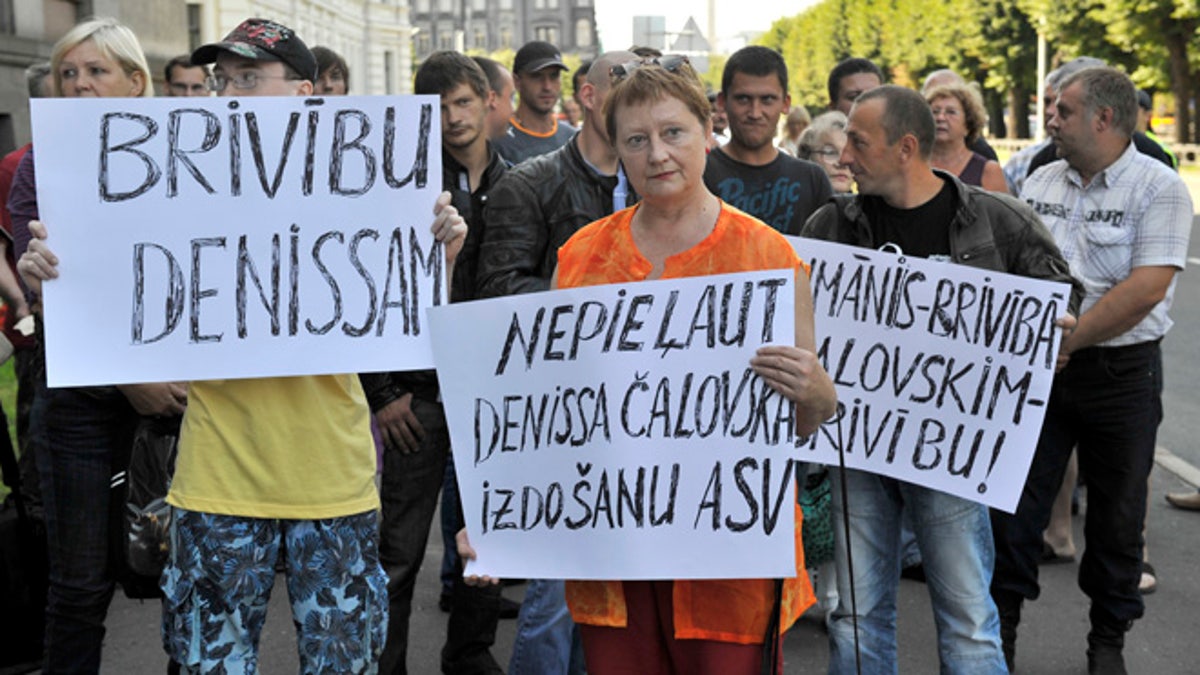 BRĪVĪBU
DENISSAM
NEPIEĻAUT
DENISSA ČALOVSKA
IZDOŠANU ASV
MĀNĪS-BRĪVĪBĀ
ALOVSKIM-
BRĪVĪBU!
Pacific